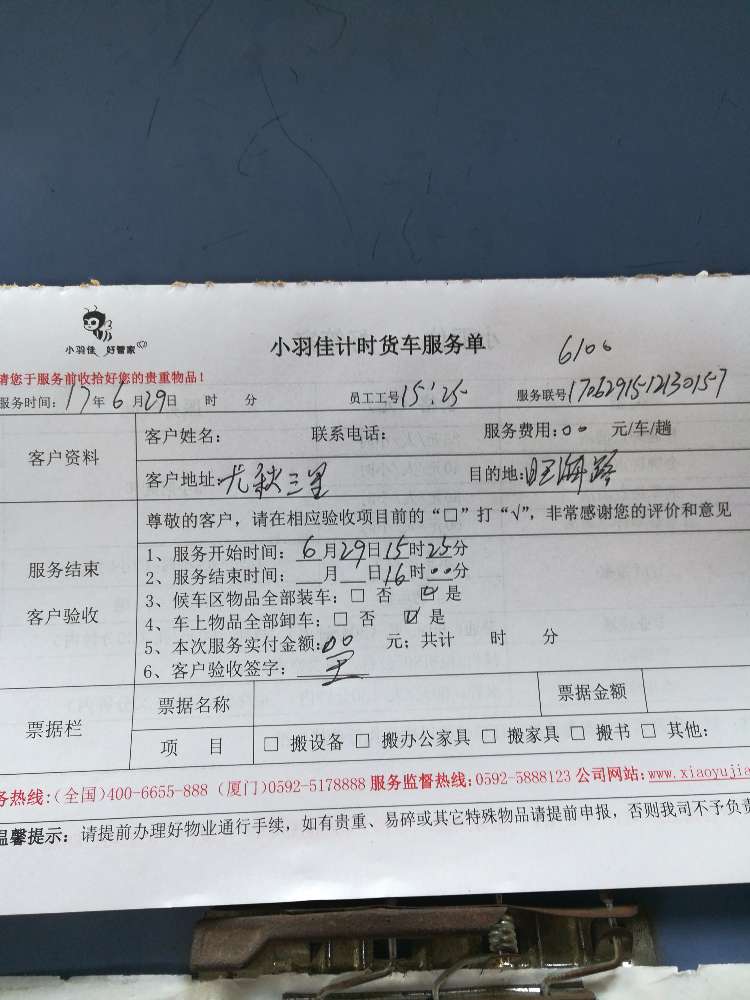 小羽佳 好管家
小羽佳计时货车服务单
6100
请您于服务前收拾好您的贵重物品！
服务时间：17年6月29日 时 分 员工工号15:25 服务联号170629151213015-7
客户资料
客户姓名： 联系电话： 服务费用：00 元/车/趟
客户地址： 秋三里 目的地： 路
尊敬的客户，请在相应验收项目前的“□”打“√”，非常感谢您的评价和意见
服务结束
客户验收
1、服务开始时间：6月29日15时25分
2、服务结束时间：__月__日16时00分
3、候车区物品全部装车：□ 否 ☑ 是
4、车上物品全部卸车：□ 否 ☑ 是
5、本次服务实付金额：00 元；共计 时 分
6、客户验收签字：
票据栏
票据名称 票据金额
项 目 □ 搬设备 □ 搬办公家具 □ 搬家具 □ 搬书 □ 其他：
务热线：（全国）400-6655-888（厦门）0592-5178888 服务监督热线：0592-5888123 公司网站：www.xiaoyujia
温馨提示：请提前办理好物业通行手续，如有贵重、易碎或其它特殊物品请提前申报，否则我司不予负责